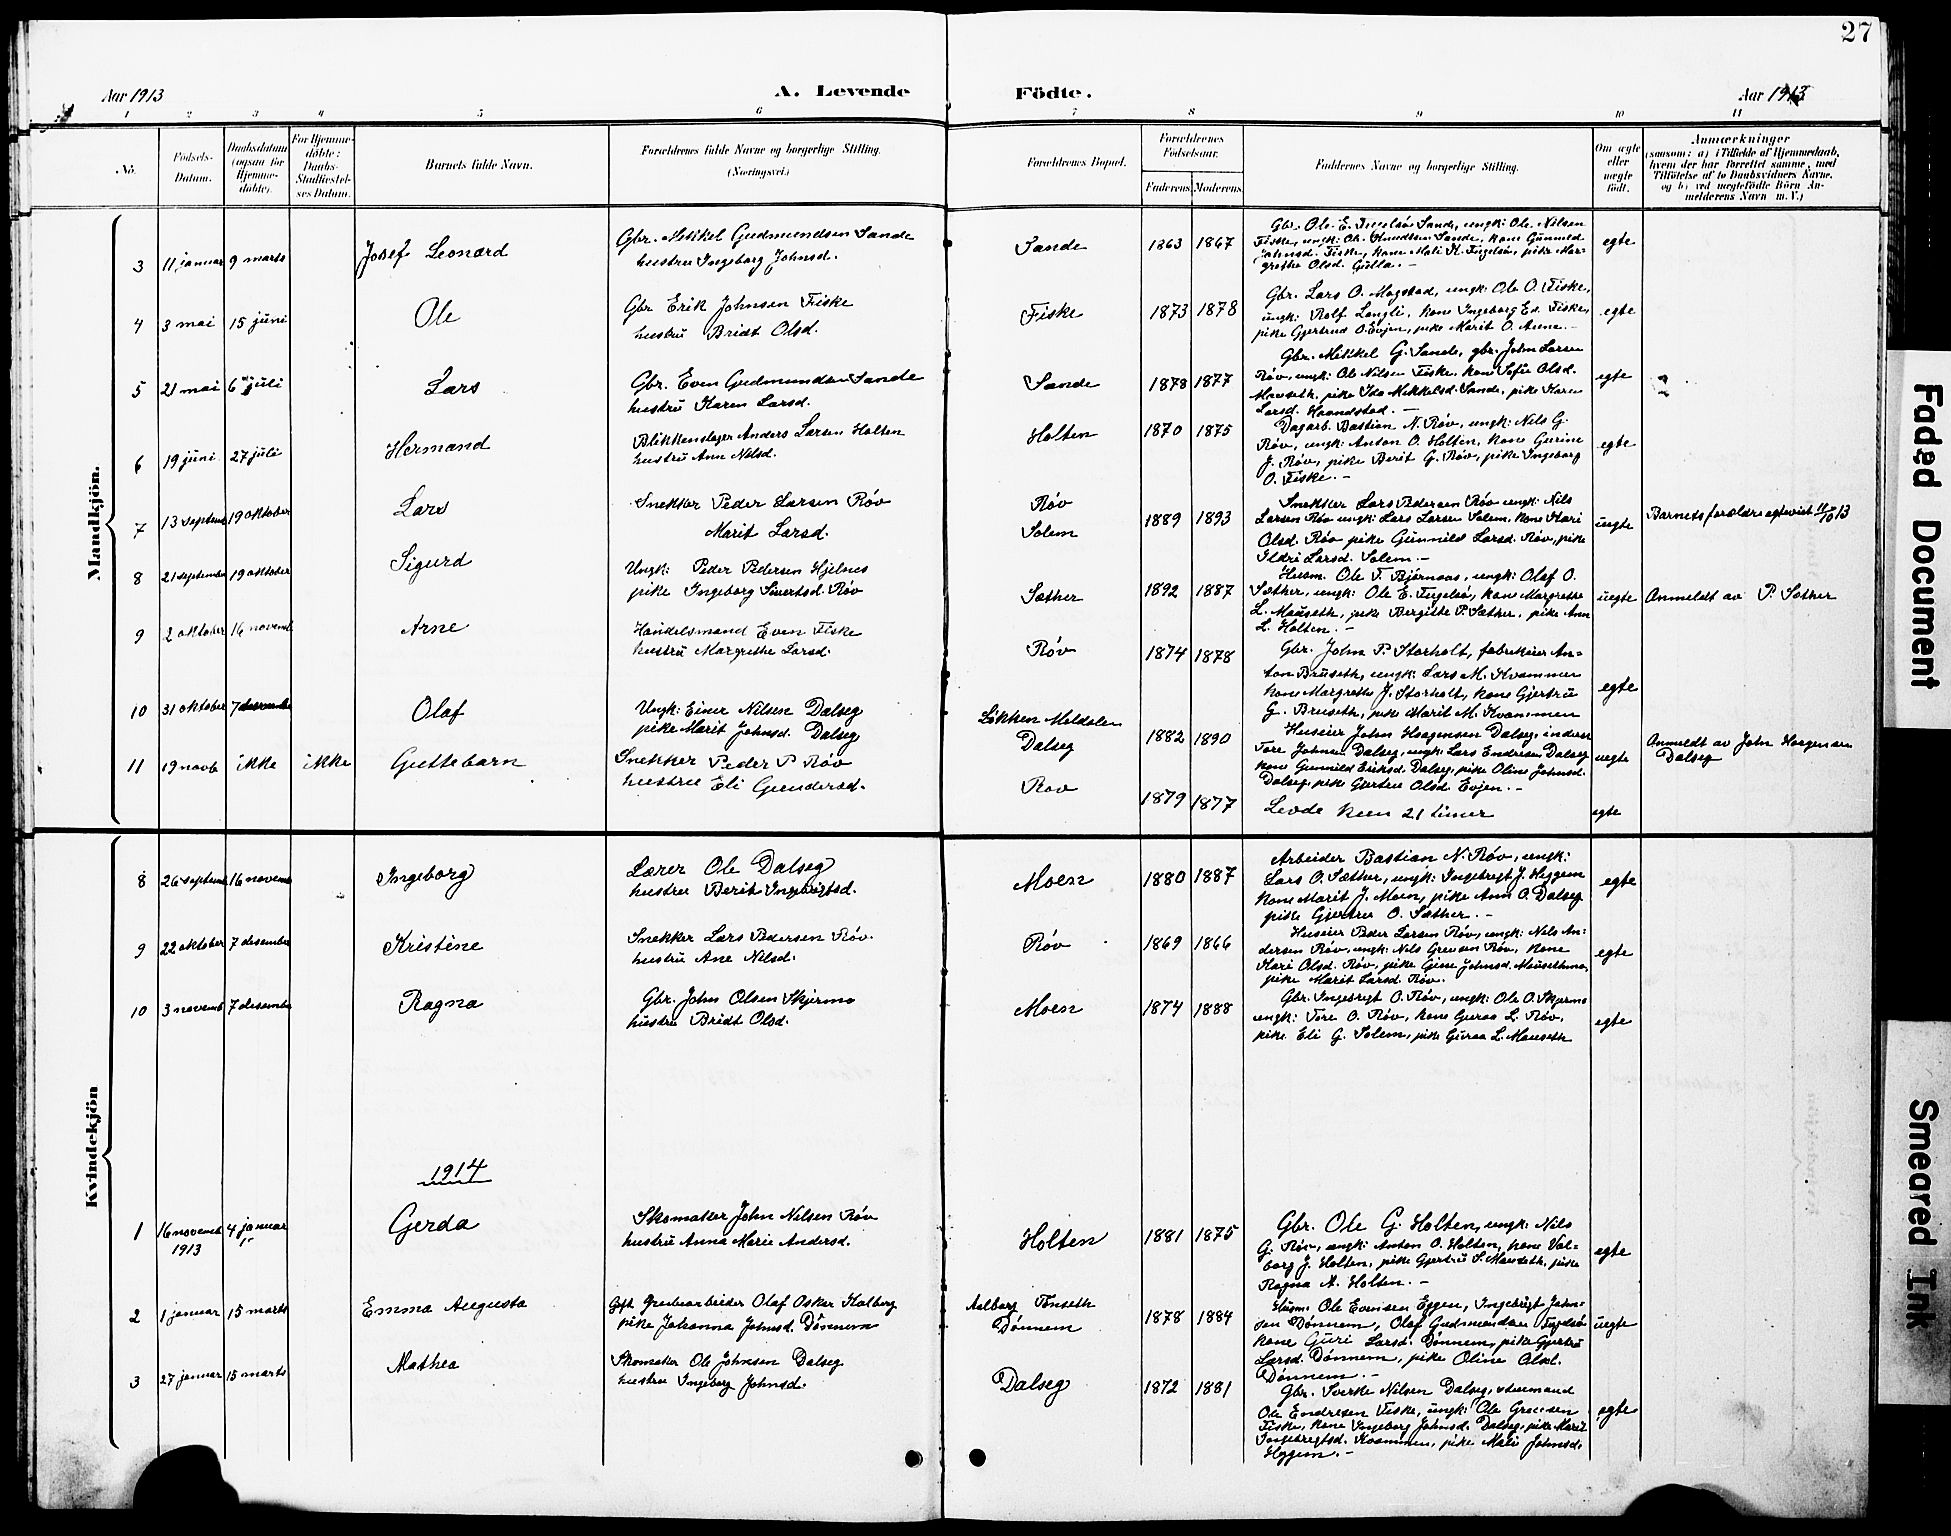 27
Aar 1913
A. Levende Födte.
Aar 1913
1 2 3 4 5 6 7 8 9 10 11
No.
Födsels-Datum.
Daabsdatum (ogsaa för Hjemme-döbte).
For Hjemme-döbte: Daabs-Stadfæstel-ses Datum.
Barnets fulde Navn.
Forældrenes fulde Navne og borgerlige Stilling. (Næringsvei.)
Forældrenes Bopæl.
Forældrenes Födselsaar.
Faderens. Moderens.
Faddernes Navne og borgerlige Stilling.
Om ægte eller uægte födt.
Anmærkninger
(saasom: a) i Tilfælde af Hjemmedaab,
hvem der har forrettet samme, med
Tilföielse af to Daabsvidners Navne.
og b) ved uægtefödte Börn An-
melderens Navn m. V.)
Mandkjön.
3 11 januar 9 marts Josef Leonard
Gbr. Mikkel Gudmundsen Sande
hustru Ingeborg Johnsd.
Sande 1863 1867
Gbr. Ole E. Sande, ungk: Ole Nilsen
Fiske, ungk: Ole Knudsen Sande, kone Gunnild
Johnsd. Fiske, kone Mali K. pike Mar-
grethe Olsd. Gulla. -
egte
4 3 mai 15 juni Ole
Gbr Erik Johnsen Fiske
hustru Bridt Olsd.
Fiske 1873 1878
Gbr. Lars O. Mogstad, ungk: Ole O. Fiske,
ungk: Rolf Langli, kone Ingeborg Ed. Fiske,
pike Gjertrud O. Evjen, pike Marit O. Aune. -
egte
5 21 mai 6 juli Lars
Gbr. Even Gudmundsen Sande
hustru Karen Larsd.
Sande 1878 1877
Gbr. Mikkel G. Sande, gbr. John Larsen
Røv, ungk: Ole Nilsen Fiske, kone Sofie Olsd.
Mauseth, pike Ida Mikkelsd. Sande, pike Karen
Larsd. Haandstad. -
egte
6 19 juni 27 juli Hermand
Blikkenslager Anders Larsen Holten
hustru Ann Nilsd.
Holten 1870 1875
Dagarb. Bastian N. Røv, ungk: Nils G.
Røv, ungk: Anton O. Holten, kone Gurine
J. Røv, pike Berit G. Røv, pike Ingeborg
O. Fiske. -
egte
7 13 septemb 19 oktober Lars
Snekker Peder Larsen Røv
Marit Larsd.
Røv
Solem 1889 1893
Snekker Lars Pedersen Røv ungk: Nils
Larsen Røv ungk: Lars Larsen Solem, kone Kari
Olsd. Røv pike Gunnild Larsd. Røv, pike
Ildri Larsd. Solem. -
uegte Barnets forældre egteviet 11/10 13
8 21 september 19 oktober Sigurd
Ungk: Peder Pedersen Hjelnes
pike Ingeborg Sivertsd. Røv
Sæther 1892 1887
Husm. Ole T. Bjørnaas, ungk: Olaf O.
Sæther, ungk: Ole E. kone Margrethe
L. Mauseth, pike Bergitte P. Sæther, pike Ann
L. Holten. -
uegte Anmeldt av P. Sæther
9 2 oktober 16 novemb Arne
Handelsmand Even Fiske
hustru Margrethe Larsd.
Røv 1874 1878
Gbr. John P. Storholt, fabrikeier An-
ton Bruseth, ungk: Lars M. Kvammen
kone Margrethe J. Storholt, kone Gjertru
G. Bruseth, pike Marit M. Kvammen
egte
10 31 oktober 7 desember Olaf
Ungk: Einer Nilsen Dalseg
pike Marit Johnsd. Dalseg
Løkken Meldalen
Dalseg 1882 1890
Huseier John Haagensen Dalseg, inderst
Tore Johnsen Dalseg, ungk: Lars Endresen Dalseg
kone Gunnild Eriksd. Dalseg, pike Oline Johnsd.
Dalseg, pike Gjertru Olsd. Evjen. -
uegte Anmeldt av John Haagensen
Dalseg
11 19 novb ikke ikke Guttebarn
Snekker Peder P. Røv
hustru Eli Gundersd.
Røv 1879 1877
Levde kun 21 timer
egte
Kvindekjön
8 26 septemb 16 novemb Ingeborg
Lærer Ole Dalseg
hustru Berit Ingebrigtsd.
Moen 1880 1887
Arbeider Bastian N. Røv, ungk:
Lars O. Sæther, ungk: Ingebregt J. Heggem
kone Marit J. Moen, pike Ann O. Dalseg
pike Gjertru O. Sæther. -
egte
9 22 oktober 7 desember Kristine
Snekker Lars Pedersen Røv.
hustru Ane Nilsd.
Røv 1869 1866
Huseier Peder Larsen Røv, ungk: Nils An-
dersen Røv, ungk: Nils Grevsen Røv, kone
Kari Olsd. Røv, pike Gine Johnsd. Mausethmo,
pike Marit Larsd. Røv.
egte
10 3 novemb 7 desember Ragna
Gbr. John Olsen Skjermo
hustru Bridt Olsd.
Moen 1874 1888
Gbr. Ingebregt O. Røv, ungk: Ole O. Skjermo
ungk: Tore O. Røv, kone Guraa L. Røv,
pike Eli G. Solem, pike Guraa L. Mauseth
egte
1914
1 16 novemb 1913 4 januar Gerda
Skomaker John Nilsen Røv
hustru Anna Marie Andersd.
Holten 1881 1875
Gbr. Ole G. Holten, ungk: Nils
G. Røv, ungk: Anton O. Holten, kone Val-
borg J. Holten, pike Gjertru S. Mauseth, pike
Ragna A. Holten. -
egte
2 1 januar 15 marts Emma Augusta
Gift Grubearbeider Olaf Oskar Kolberg
pike Johanna Johnsd. Dønnem
Aalberg Tønseth
Dønnem 1878 1884
Husm. Ole Evensen Eggen, Ingebrigt John-
sen Dønnem, Olaf Gudmundsen
kone Guri Larsd. Dønnem, pike Gjertru
Larsd. Dønnem, pike Oline Olsd.
Dønnem. -
uegte
3 27 januar 15 marts Mathea
Skomaker Ole Johnsen Dalseg
hustru Ingeborg Johnsd.
Dalseg 1872 1881
Gbr. Sverke Nilsen Dalseg,
Ole Endresen Fiske, ungk: Ole Grevsen
Fiske, kone Ingeborg Johnsd. Dalseg, pike Marit
Ingebregtsd. Kvammen, pike Mali Johnsd.
Heggem. -
egte
Faded Document
Smeared Ink